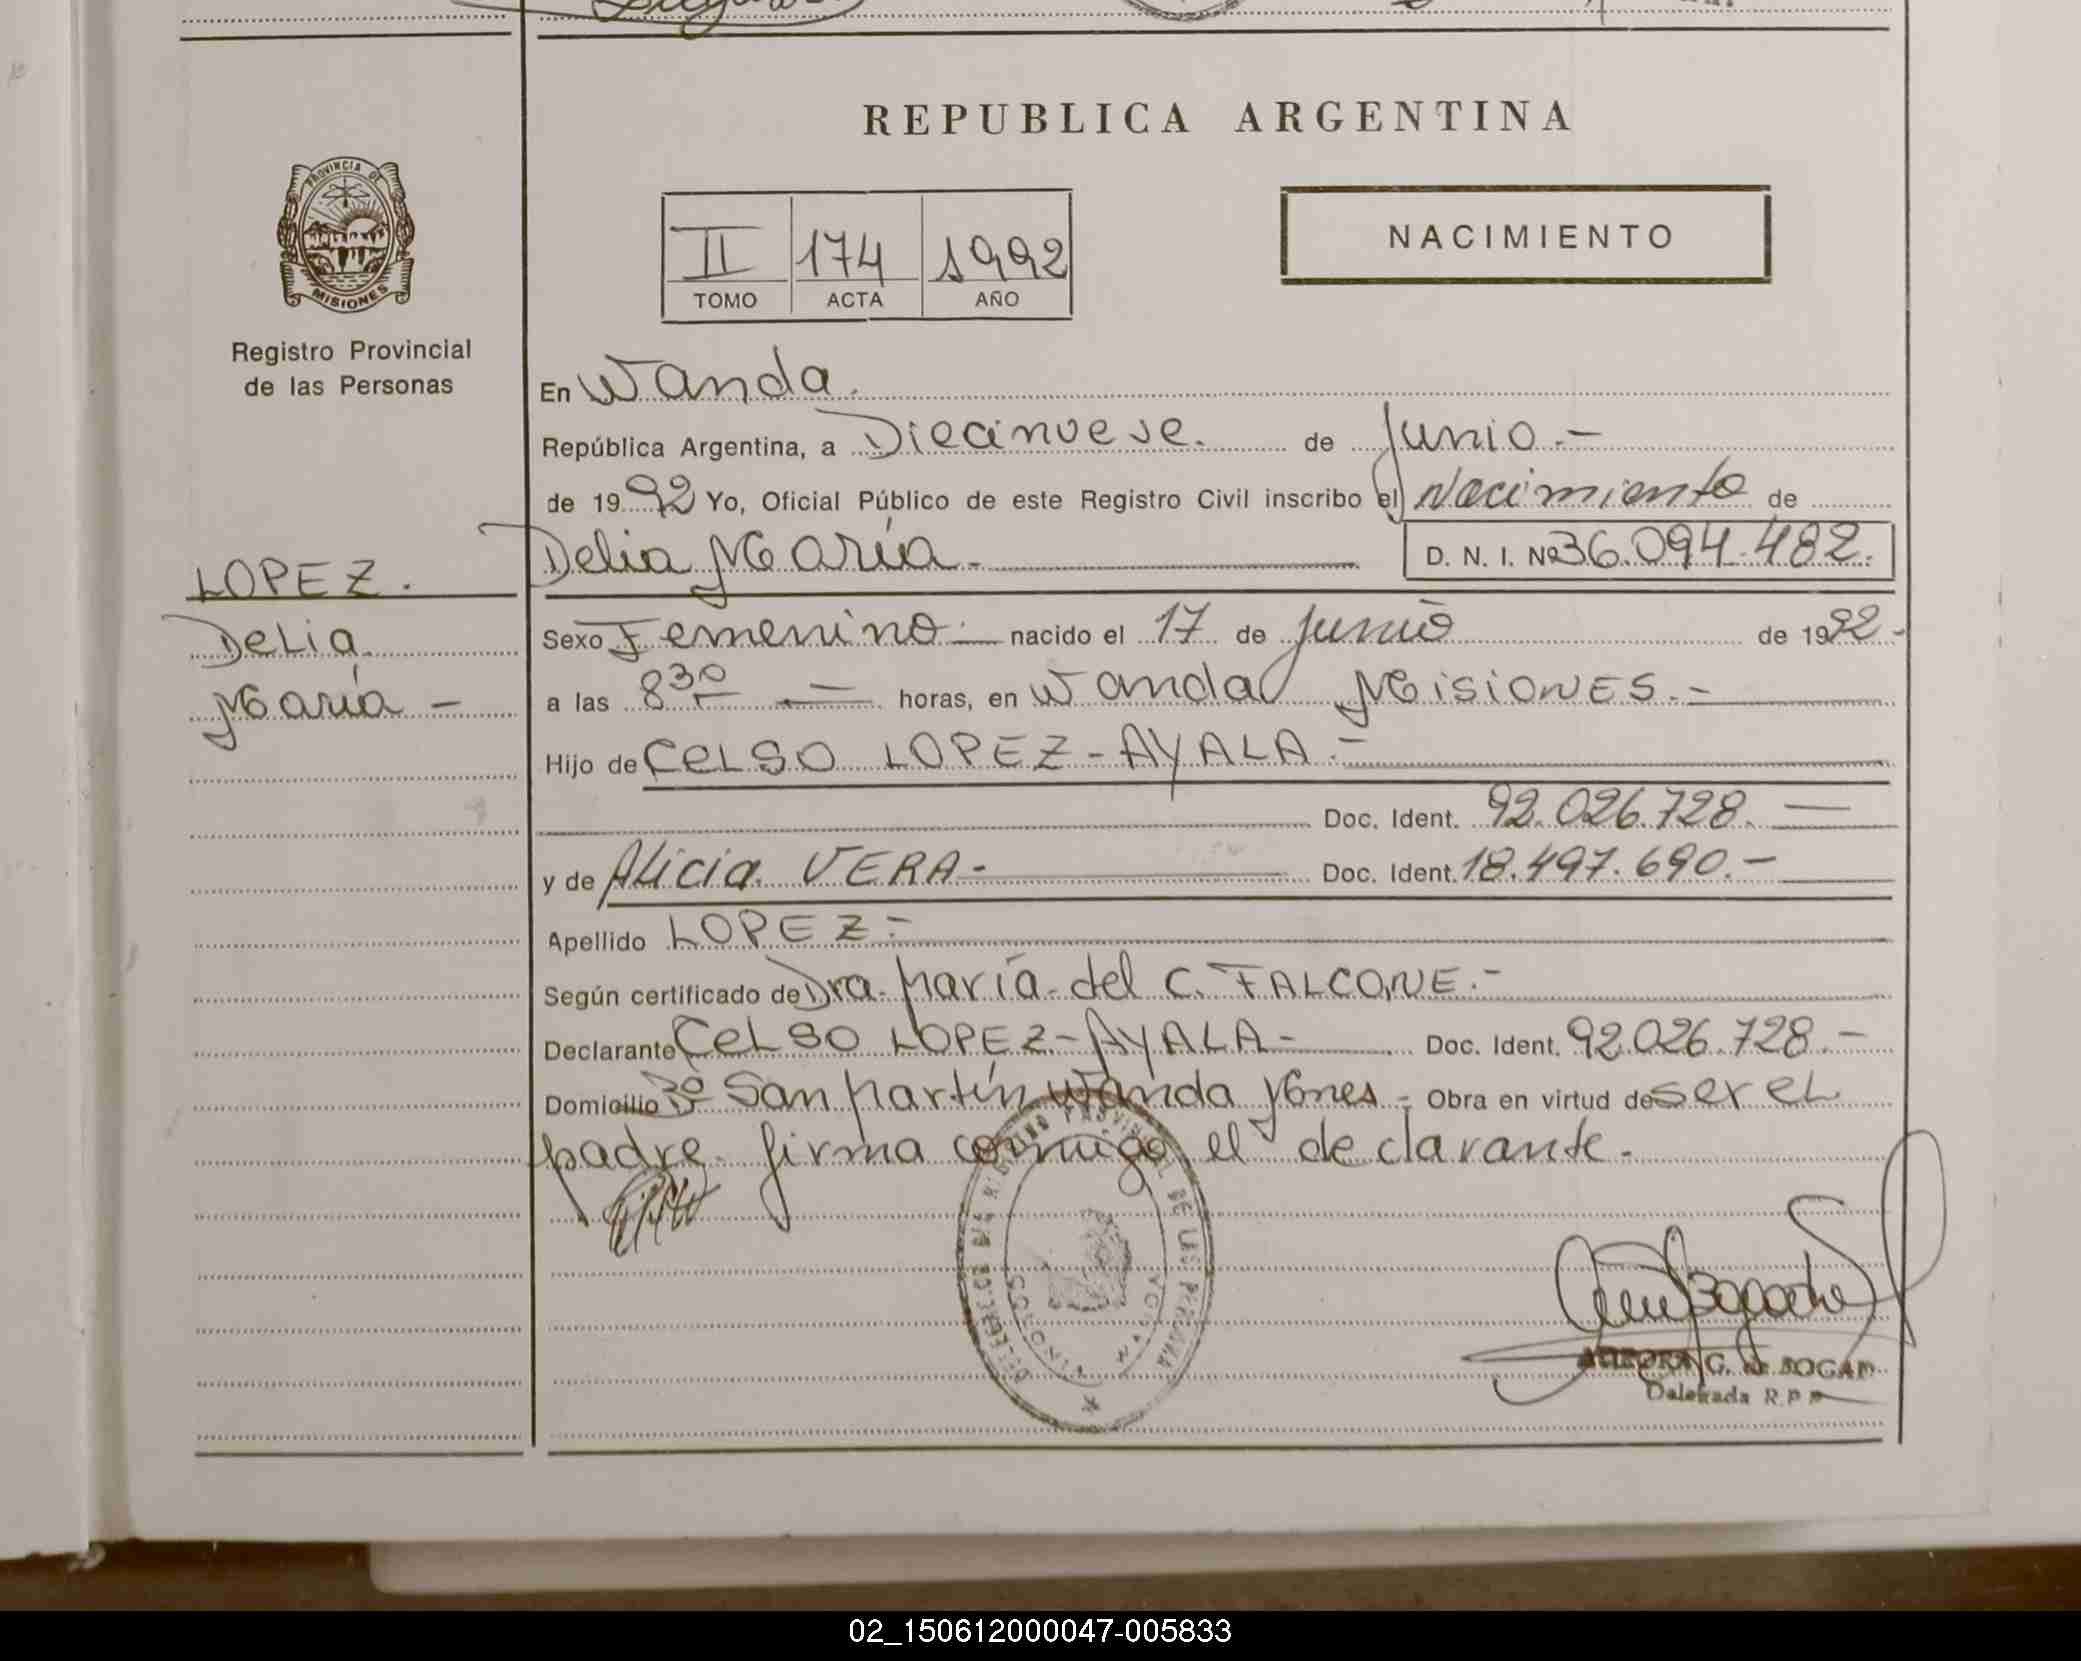 REPUBLICA ARGENTINA
PROVINCIA DE
MISIONES
Registro Provincial
de las Personas
II 174 1992
TOMO ACTA AÑO
NACIMIENTO
En Wanda.
República Argentina, a Diecinueve. de Junio.-
de 1992 Yo, Oficial Público de este Registro Civil inscribo el Nacimiento de
Delia María.- D. N. I. Nº 36.094.482.
LOPEZ.
Delia
María -
Sexo Femenino.- nacido el 17 de junio de 1992-
a las 8 30 — horas, en Wanda Misiones.-
Hijo de Celso LOPEZ-AYALA.-
Doc. Ident. 92.026.728.-
y de Alicia VERA- Doc. Ident. 18.497.690.-
Apellido LOPEZ-
Según certificado de Dra. María del C. FALCONE.-
Declarante Celso LOPEZ-AYALA- Doc. Ident. 92.026.728.-
Domicilio Bº San Martín Wanda Mnes - Obra en virtud de ser el
padre. firma conmigo el declarante.-
DE LAS PERSONAS
WANDA
MISIONES
G. de BOGAD
Delegada R.P.P
02_150612000047-005833